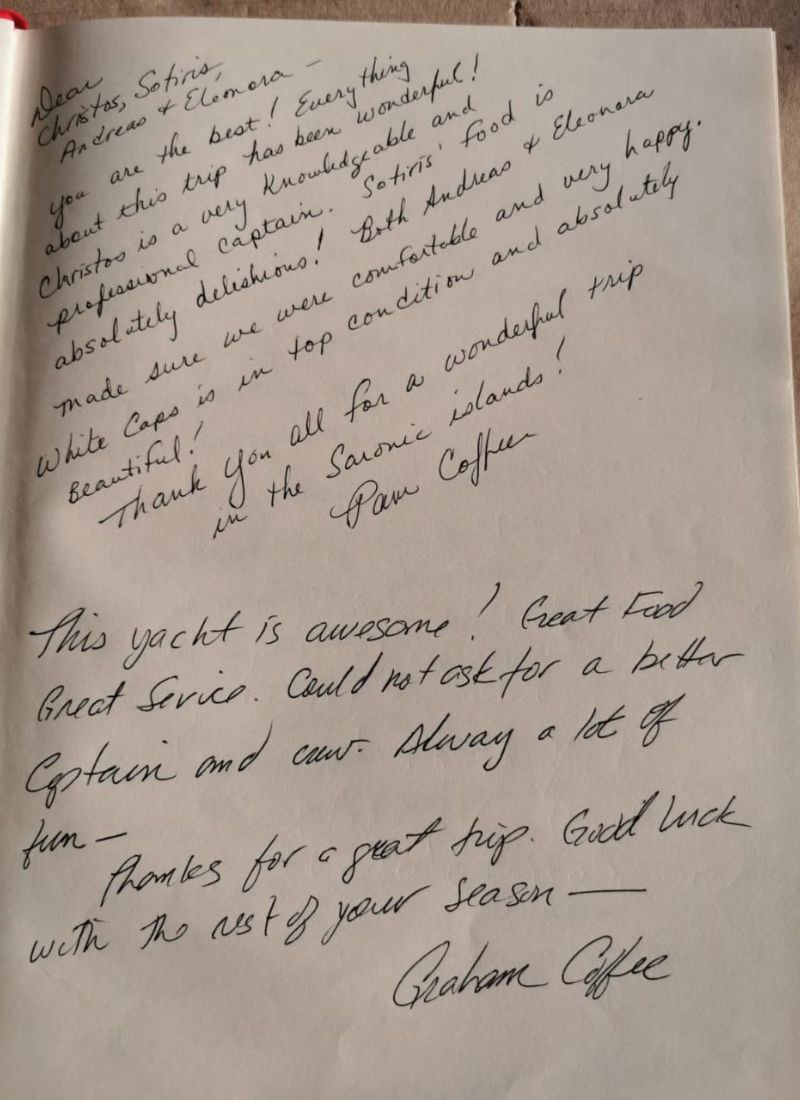 Dear
Christos, Sotiris,
Andreas & Eleonora –
you are the best! Everything
about this trip has been wonderful!
Christos is a very knowledgeable and
professional captain. Sotiris' food is
absolutely delishious! Both Andreas & Eleonara
made sure we were comfortable and very happy.
White Caps is in top condition and absolutely
Beautiful!
Thank you all for a wonderful trip
in the Saronic islands!
Pam Coffee
This yacht is awesome! Great Food
Great Service. Could not ask for a better
Captain and crew. Alway a lot of
fun –
Thanks for a great trip. Good luck
with the rest of your season —
Graham Coffee